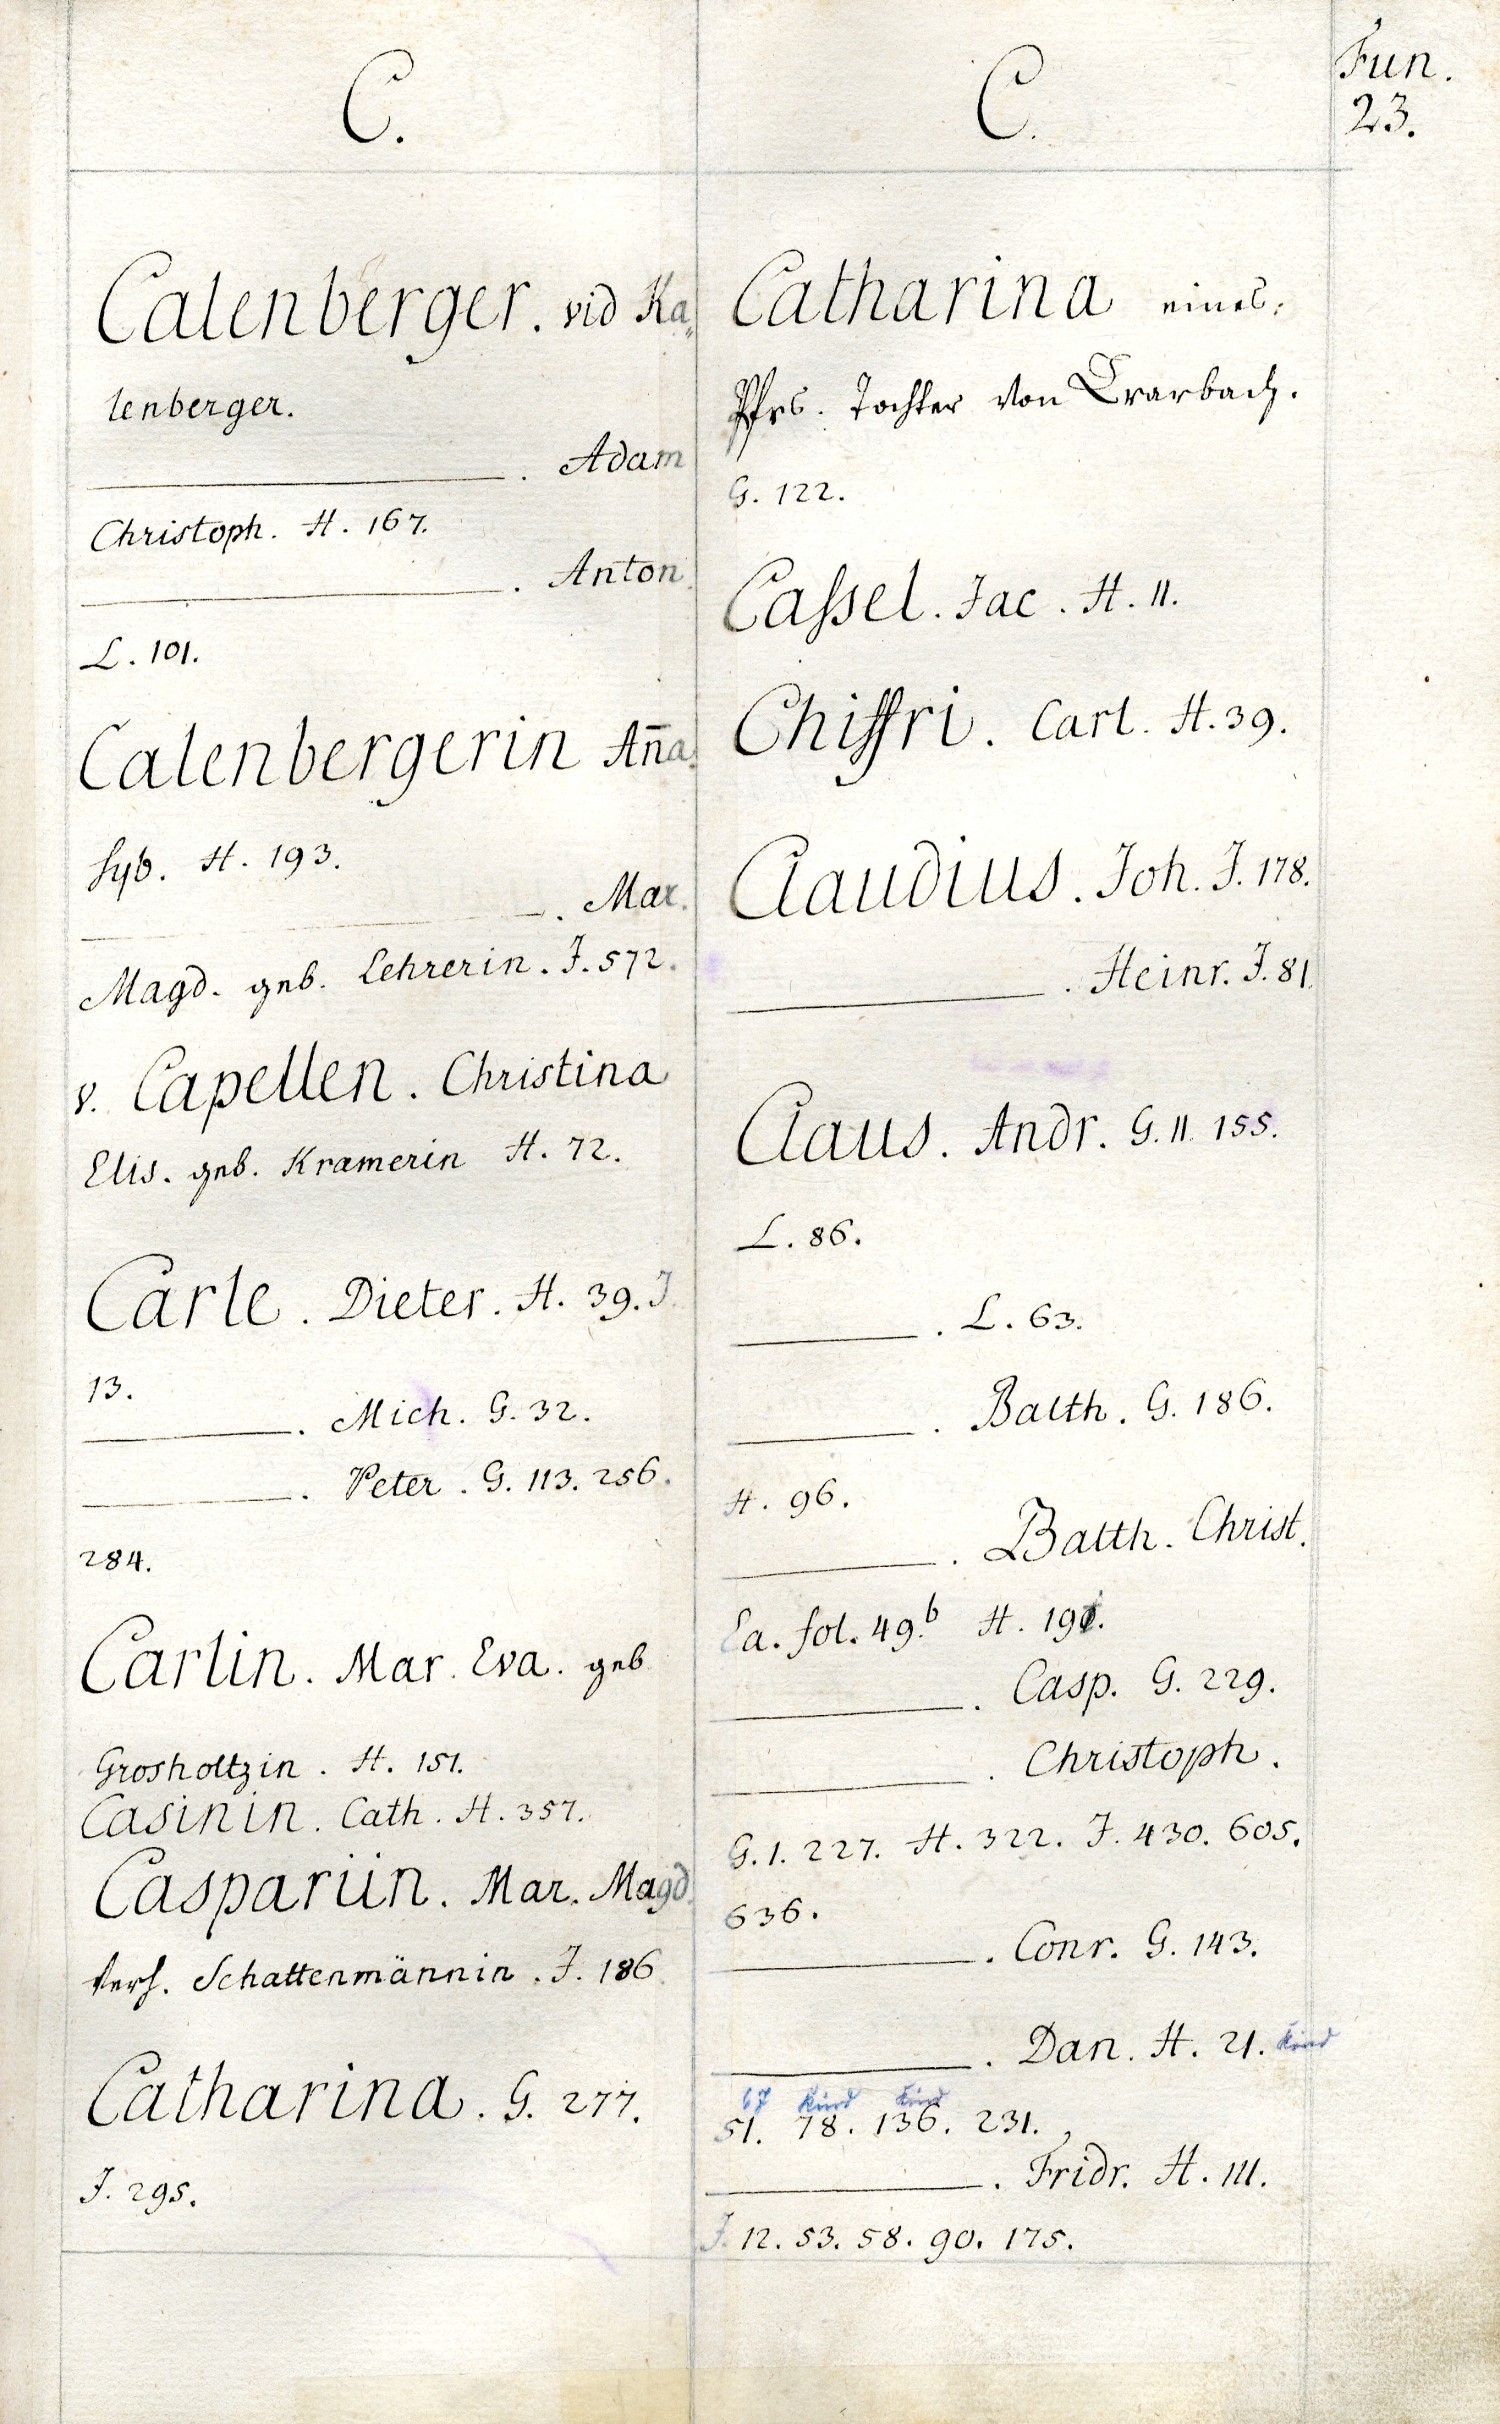 C.
Calenberger. vid Ka„
lenberger.
. Adam
Christoph. H. 167.
. Anton
L. 101.
Calenbergerin Aña
Syb. H. 193.
. Mar.
Magd. geb. Lehrerin. J. 572.
v. Capellen. Christina
Elis. geb. Kramerin H. 72.
Carle. Dieter. H. 39. J.
13.
. Mich. G. 32.
. Peter. G. 113. 256.
284.
Carlin. Mar. Eva. geb
Grosholtzin. H. 151.
Casinin. Cath. H. 357.
Caspariin. Mar. Magd.
verh. Schattenmännin. J. 186
Catharina. G. 277.
J. 295.
C.
Catharina eines
Pfrs. Tochter von Trarbach.
G. 122.
Caſsel. Jac. H. 11.
Chiffri. Carl. H. 39.
Claudius. Joh. J. 178.
. Heinr. J. 81.
Claus. Andr. G. II. 155.
L. 86.
. L. 63.
. Balth. G. 186.
H. 96.
. Balth. Christ.
Ea. fol. 49.b H.
. Casp. G. 229.
. Christoph.
G. 1. 227. H. 322. J. 430. 605.
636.
. Conr. G. 143.
. Dan. H. 21. Kind
67 Kind Kind
51. 78. 136. 231.
. Fridr. H. 111.
J. 12. 53. 58. 90. 175.
Fun.
23.